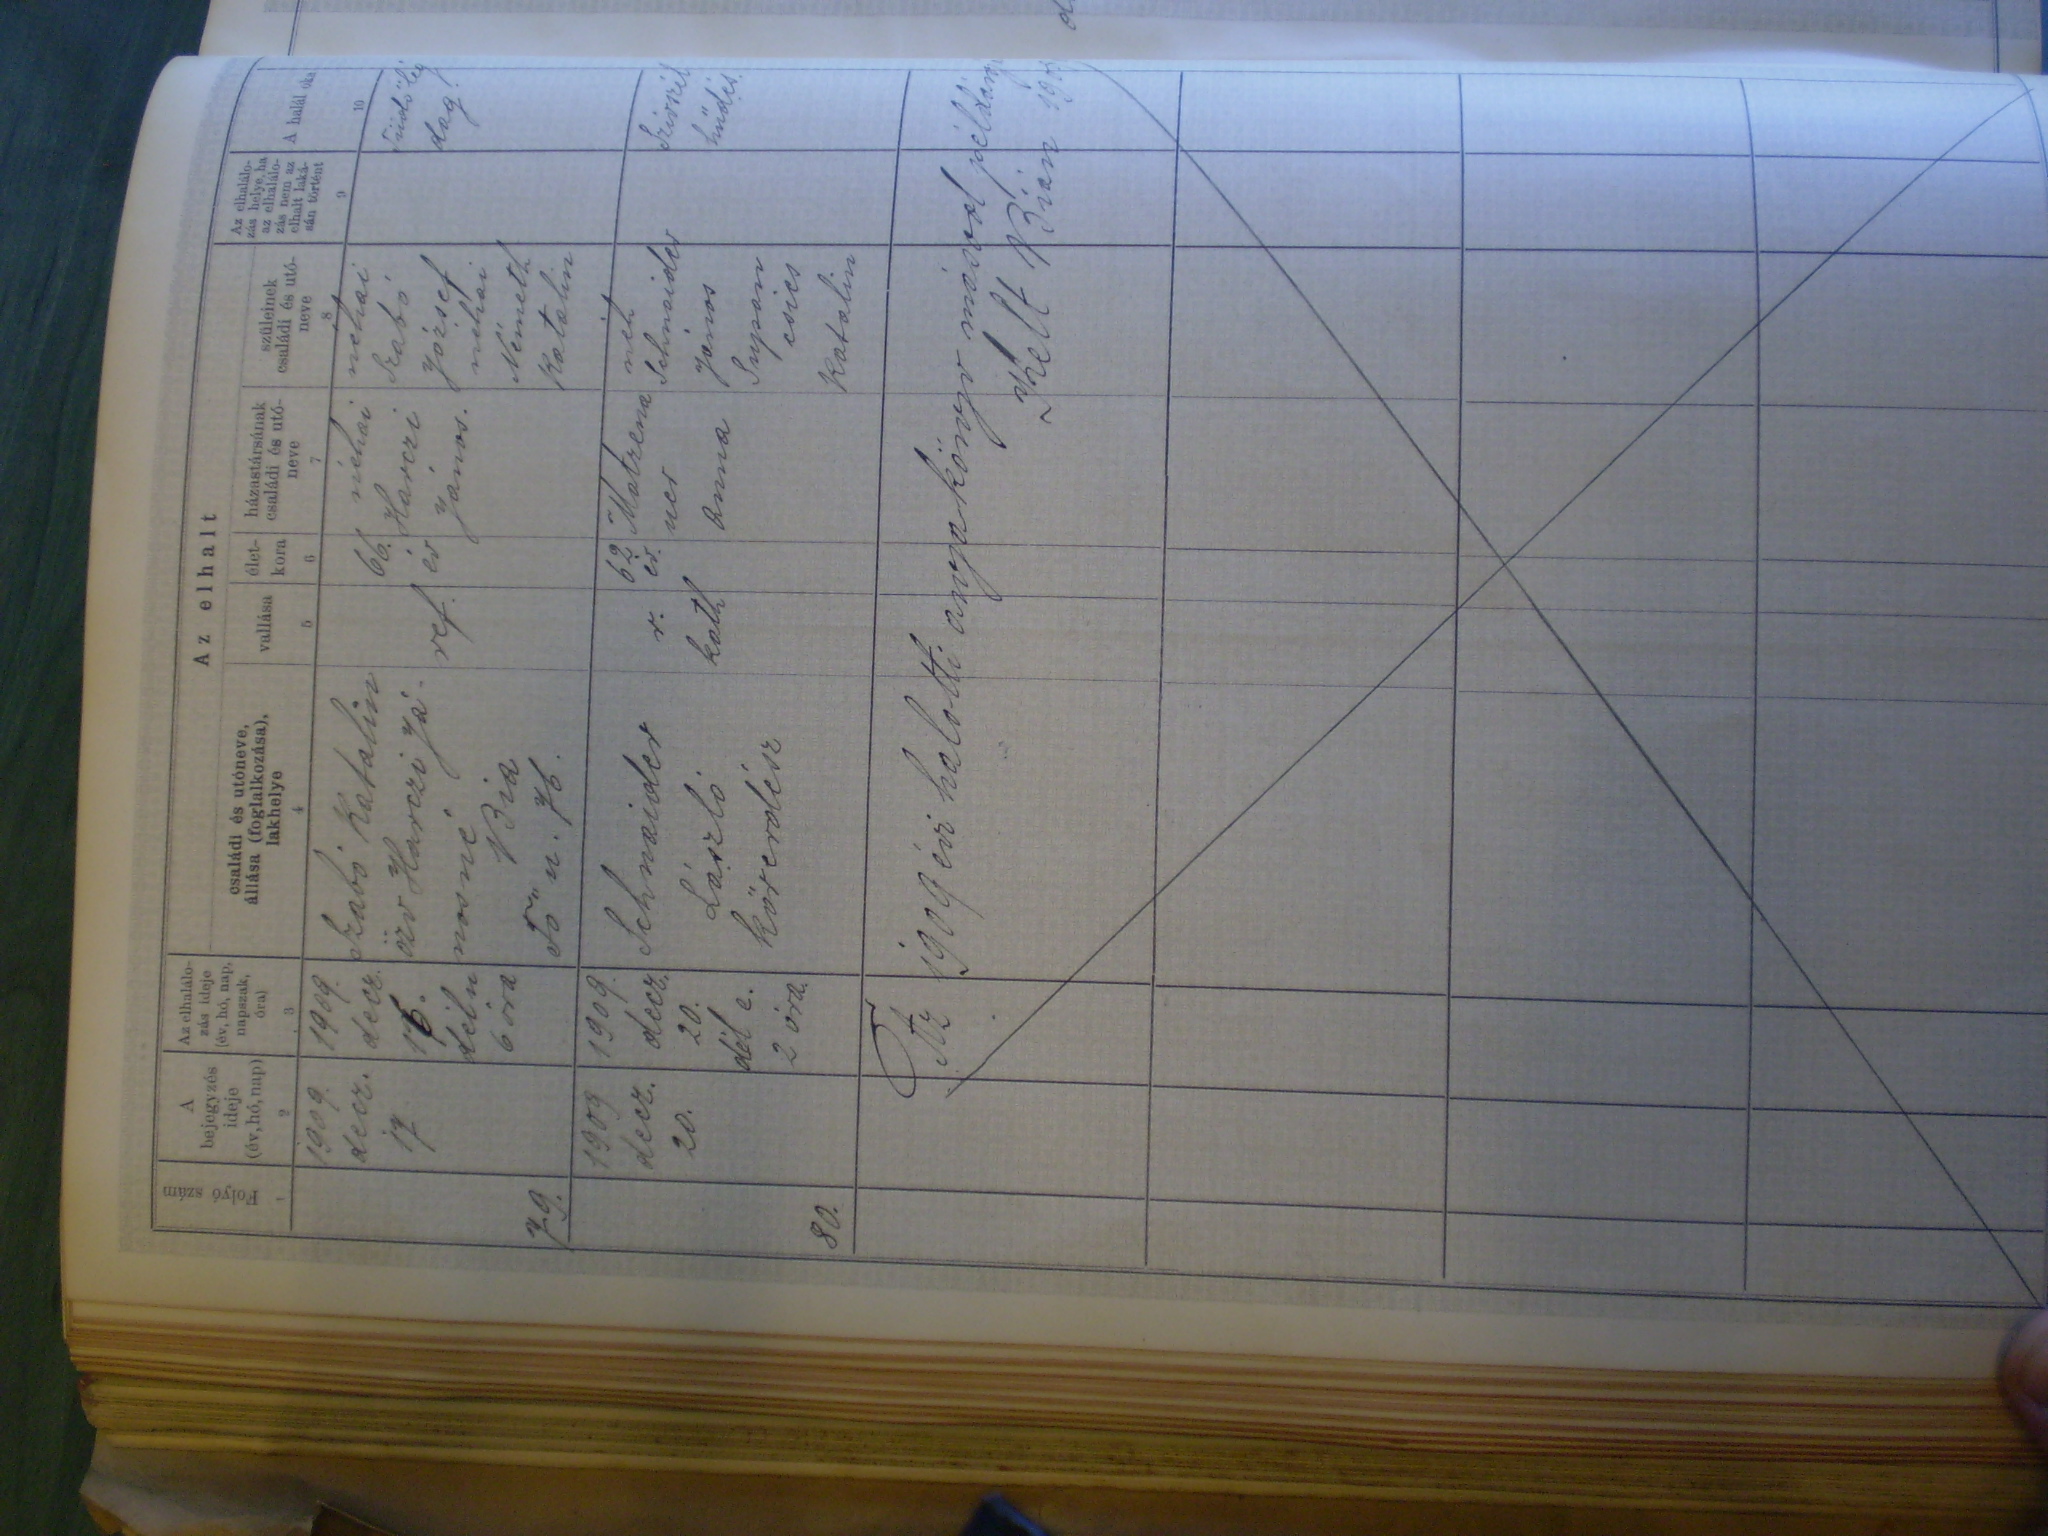 Az elhalt
Folyó szám
A bejegyzés ideje (év, hó, nap)
Az elhalálo-
zás ideje
(év, hó, nap,
napszak,
óra)
családi és utóneve,
állása (foglalkozása),
lakhelye
vallása
élet-
kora
házastársának
családi és utó-
neve
szüleinek
családi és utó-
neve
Az elhalálo-
zás helye, ha
az elhalálo-
zás nem az
elhalt laká-
sán történt
A halál oka
1 2 3 4 5 6 7 8 9 10
79.
1909.
decz.
17
1909.
decz.
16.
déln
6 óra
Szabó Katalin
özv Harczi Já-
nosné
Bia
Fő u. 76.
ref.
66.
év
néhai
Harczi
János.
néhai
Szabó
József
néhai
Németh
Katalin
Tüdőlég
dag.
80.
1909
decz.
20.
1909.
decz.
20.
dél e.
2 óra.
Schneider
László
kőverdész
r.
kath
62
év.
Anna
néh
Schneider
János
Katalin
hűdés.
Az 1909 évi halotti anyakönyv másod
Kelt Bián